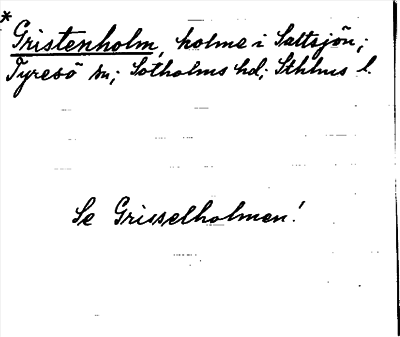 *
Gristenholm, holme i Saltsjön;
Tyresö sn; Sotholms hd; Sthlms l.
Se Grisselholmen!